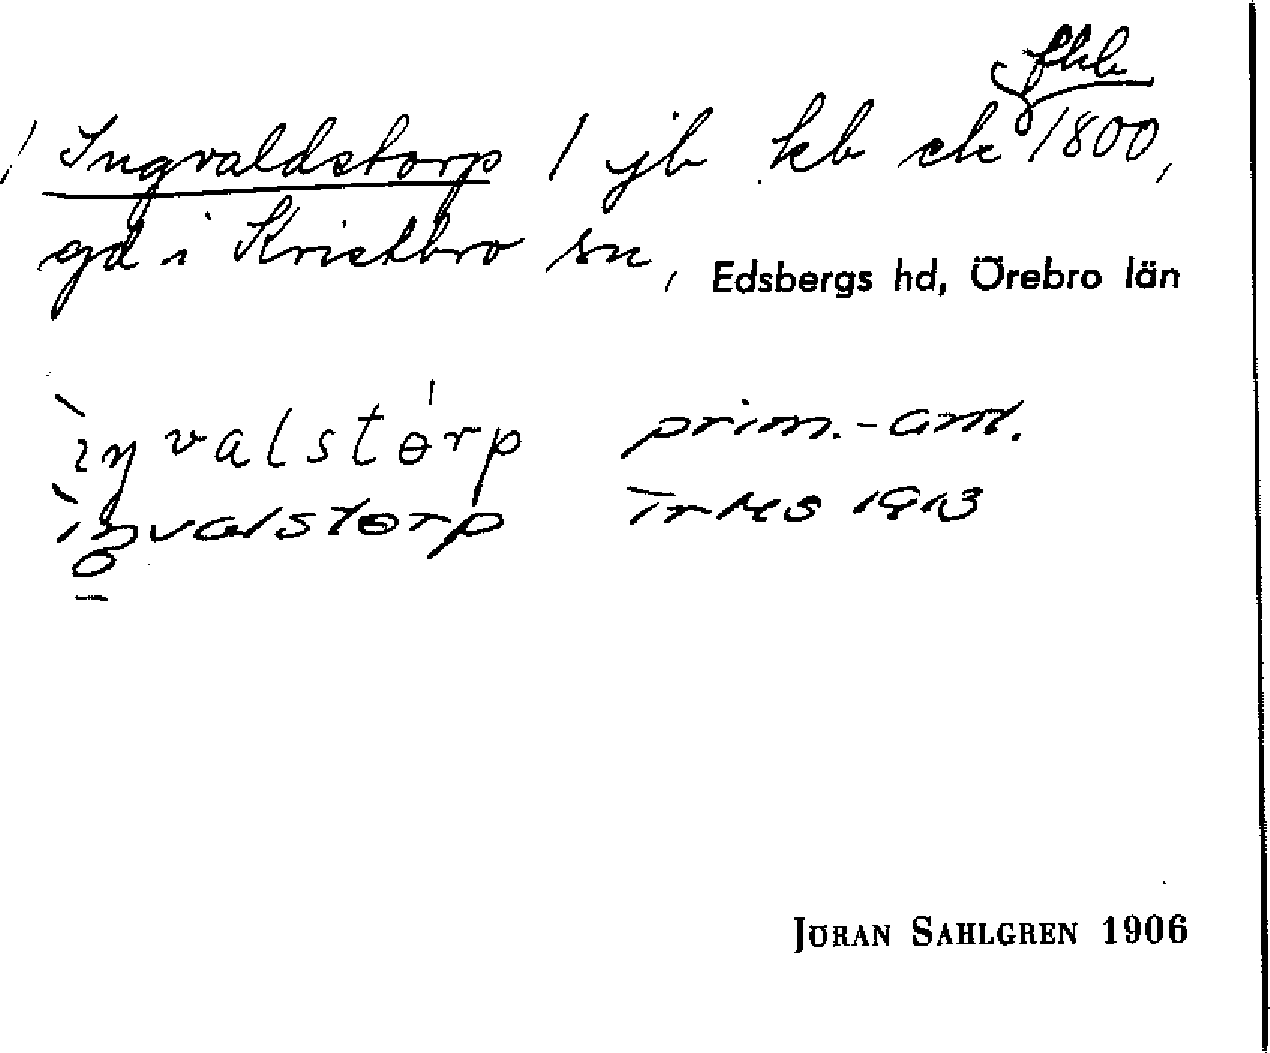 fkb
/ Ingvaldstorp / jb kb ek 1800,
gd i Kristbro sn, Edsbergs hd, Örebro län
ìŋvalstɵ́rp prim.-ant.
ìŋvalstɵrp 1913
JÖRAN SAHLGREN 1906